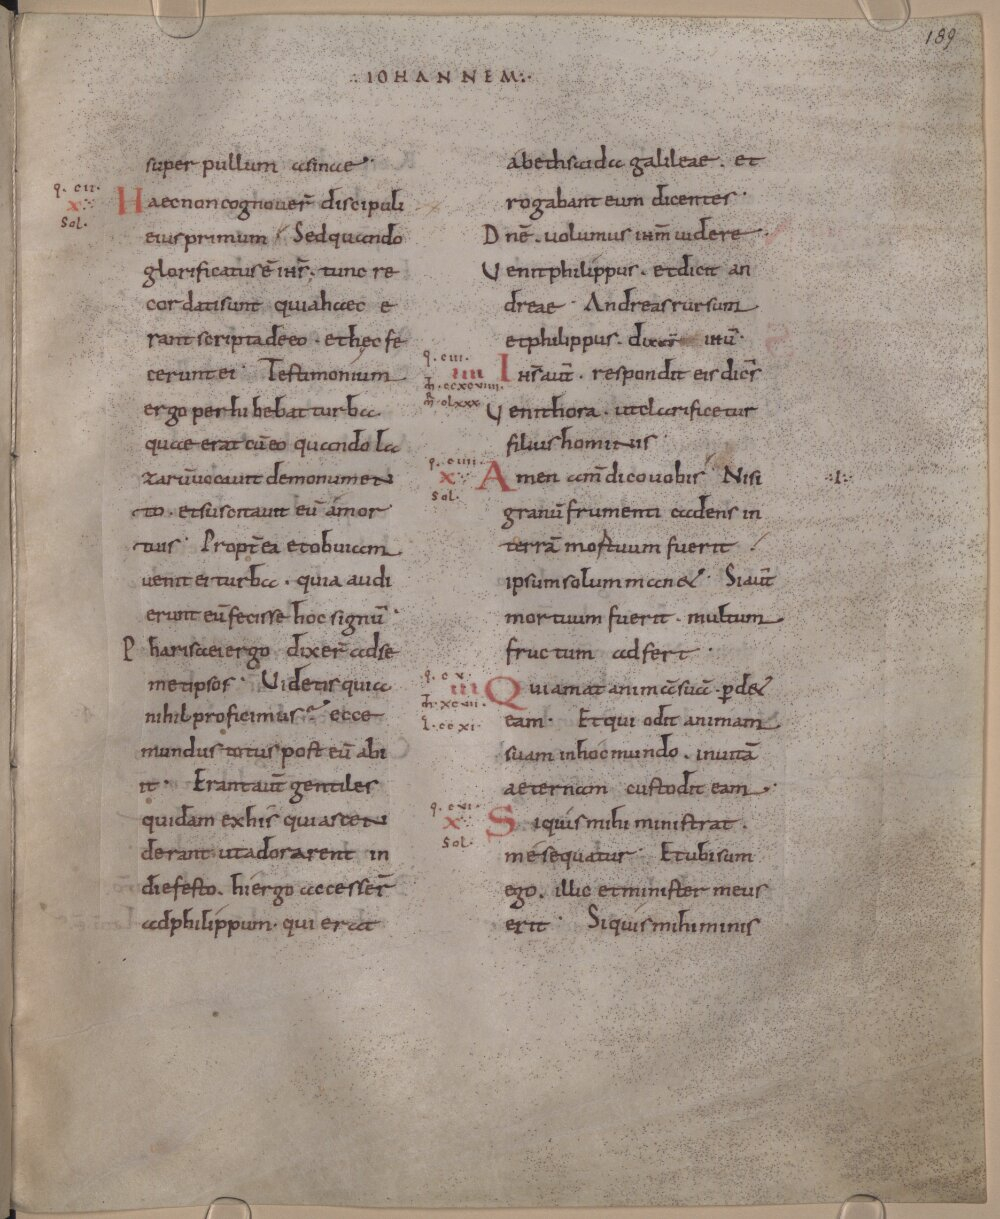 189
·:IOHANNEM:·
super pullum asinae·
q. cii.
x
sol.
Haec non cognouer̄ discipuli
eius primum· Sed quando
glorificatus ē ihs̄. tunc re
cordati sunt quia haec e
rant scripta de eo. et hęc fe
cerunt ei· Testimonium
ergo perhibebat turba
quae erat cū eo quando la
zarū uocauit de monumen
to. et suscitauit eū a mor
tuis· Propt̄ea et obuiam
uenit ei turba. quia audi
erunt eū fecisse hoc signū·
Pharisaei ergo dixer̄ ad se
metipsos· Uidetis quia
nihil proficimus ecce
mundus totus post eū abi
it· Erant aut̄ gentiles
quidam ex his qui ascen
derant ut adorarent in
die festo. hi ergo accesser̄
ad philippum. qui erat
a bethsaida galileae. et
rogabant eum dicentes·
Dnē. uolumus ihm̄ uidere·
Uenit philippus. et dicit an
dreae· Andreas rursum
et philippus. ihū·
q. ciii.
iiii
m̄. ccxcviiii.
m̄. clxxx
Ihs̄ aut̄. respondit eis dicēs
Uenit hora. ut clarificetur
filius hominis·
q. ciiii.
x
sol.
Amen am̄ dico uobis Nisi
·:I:·
granū frumenti cadens in
terrā mortuum fuerit
ipsum solum manet· Si aut̄
mortuum fuerit. multum
fructum adfert·
q. cv.
iii
m̄. xcvii.
l. ccxi.
Qui amat animā suā. ꝑdet
eam· Et qui odit animam
suam in hoc mundo. in uitā
aeternam custodit eam·
q. cvi.
x
sol.
Si quis mihi ministrat.
me sequatur· Et ubi sum
ego. illic et minister meus
erit· Si quis mihi minis